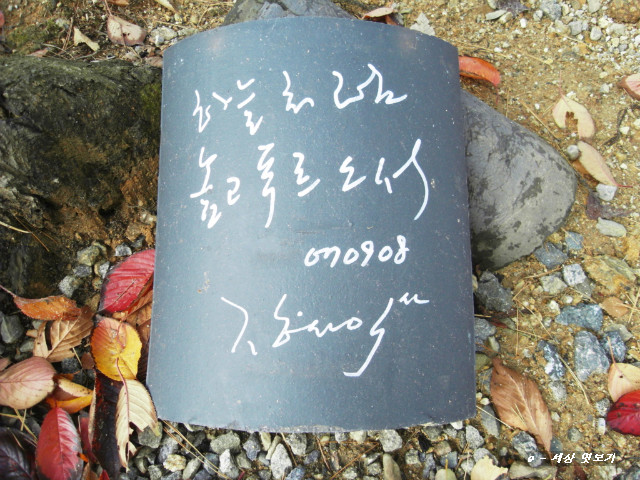 하늘처럼
높고 푸르소서
070908
o - 세상 엿보기